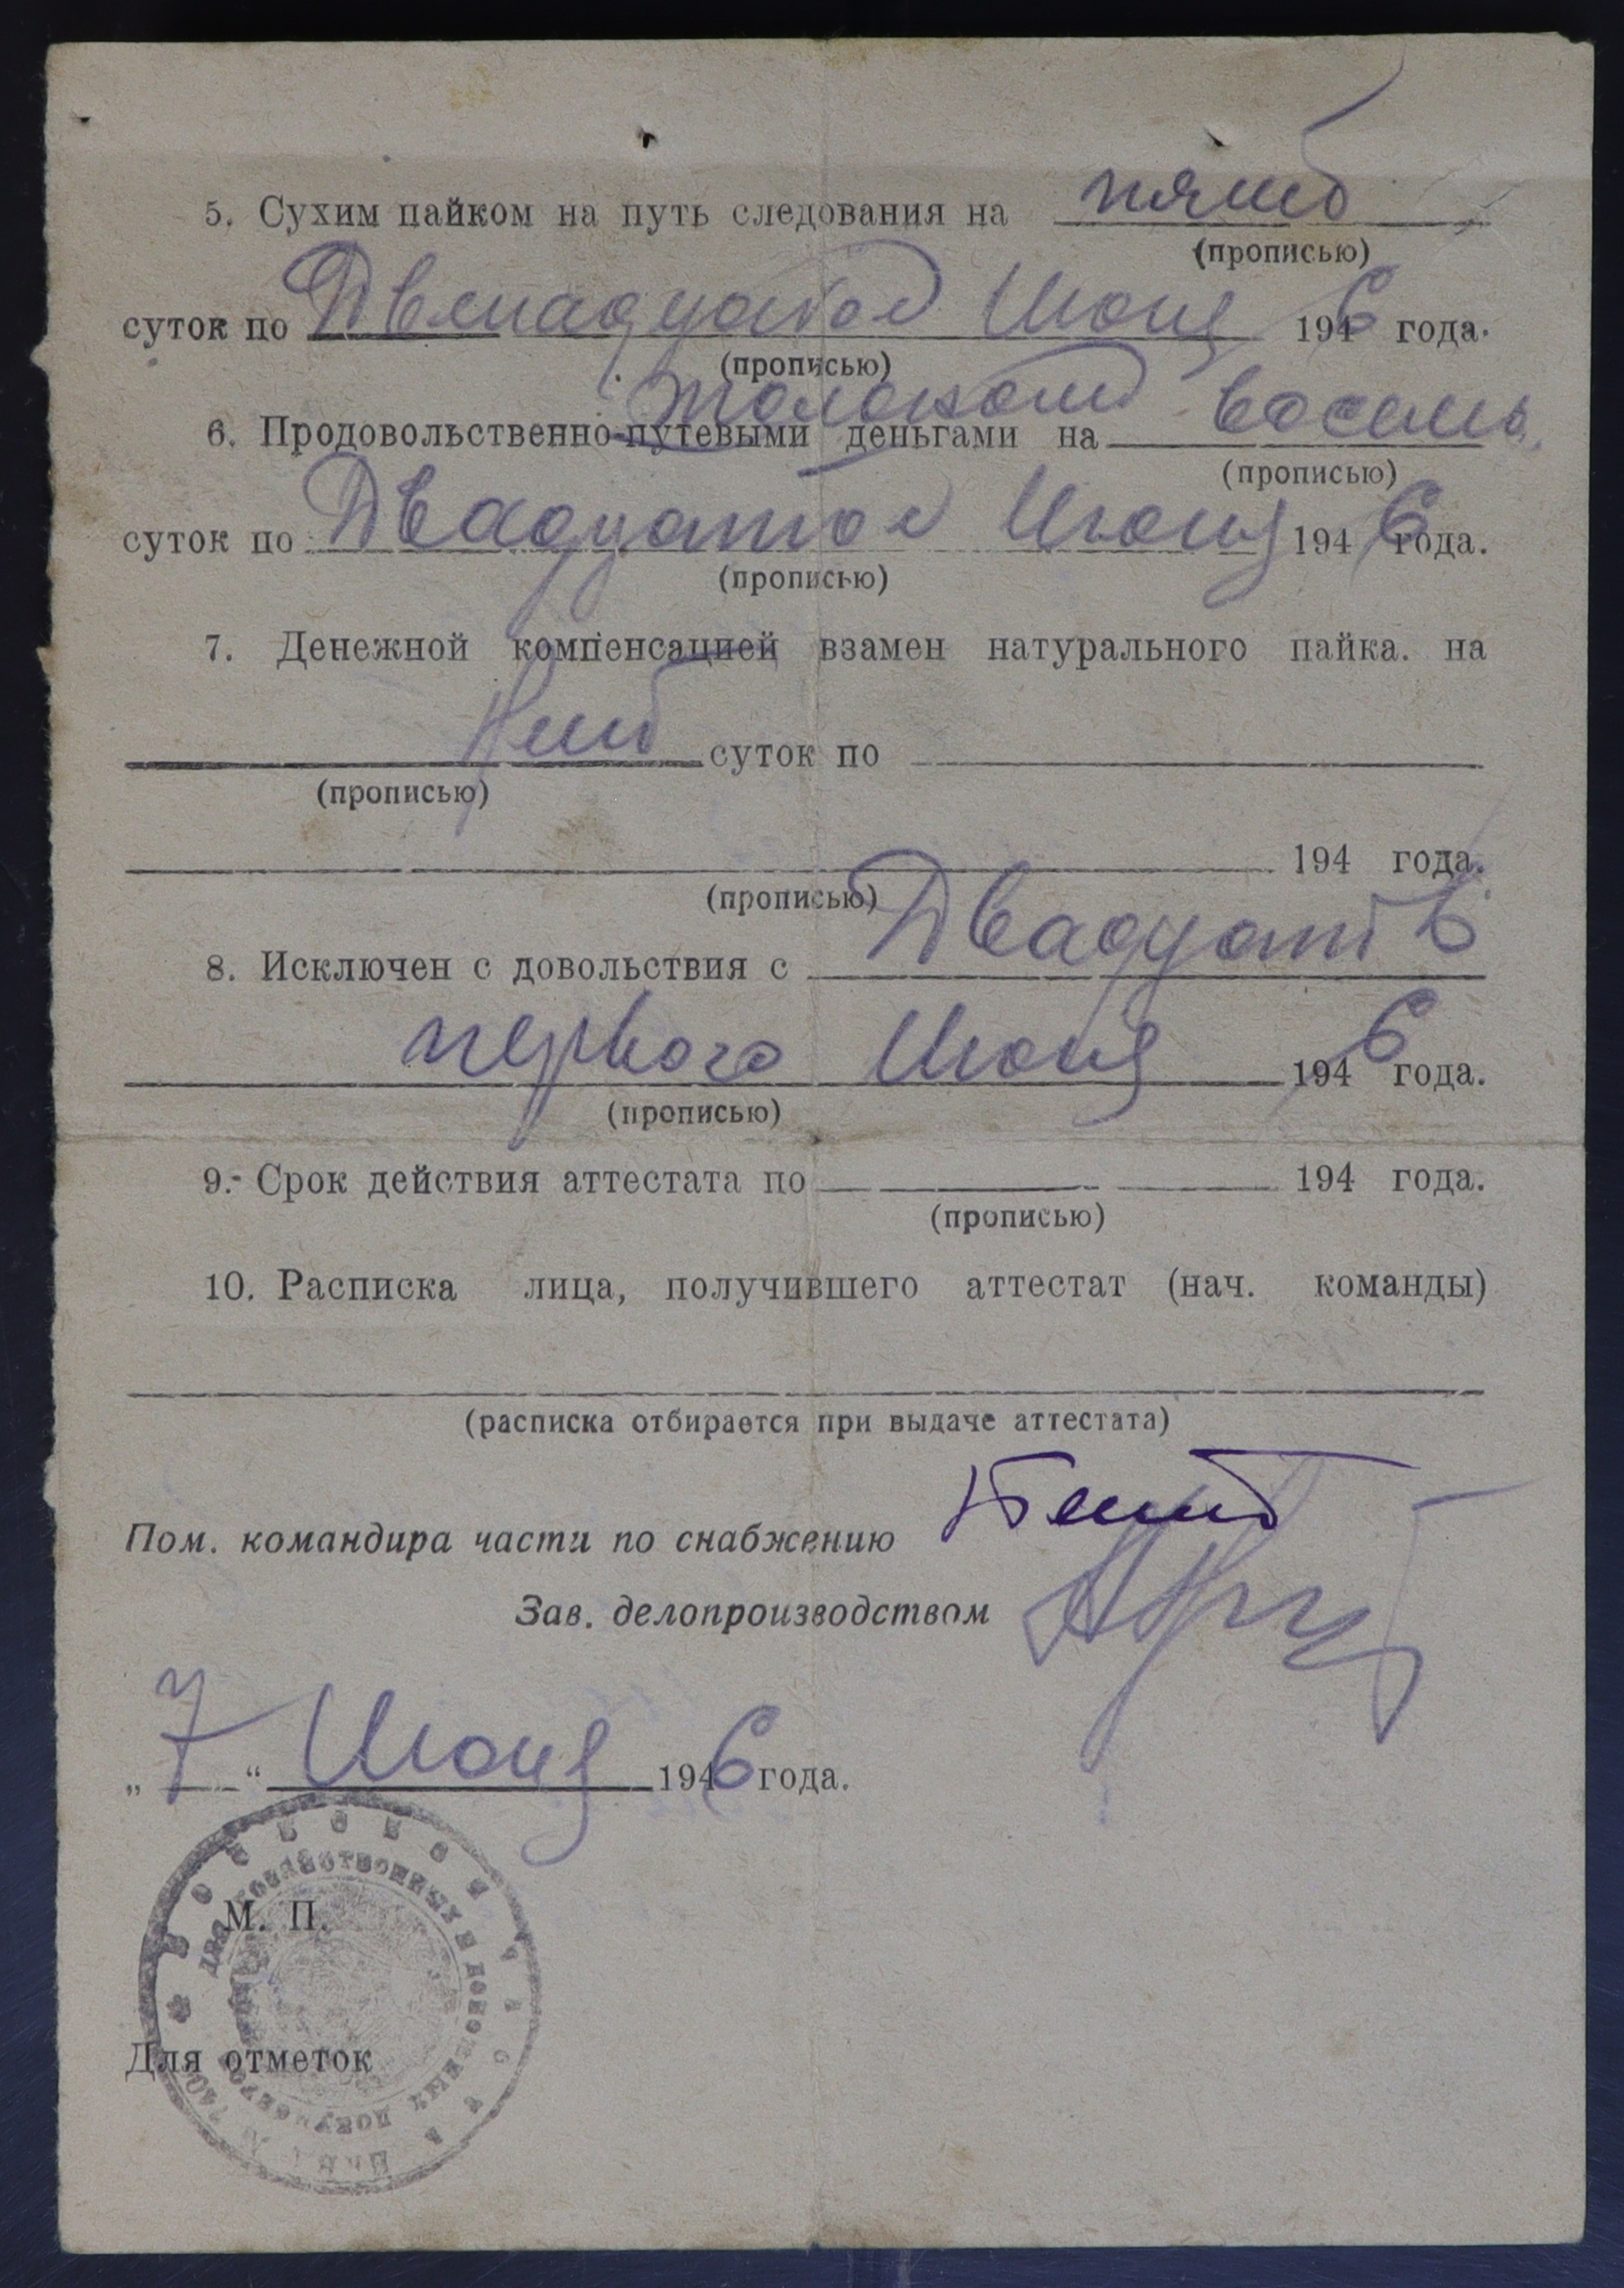 5. Сухим пайком на путь следования на пять
(прописью)
суток по Двенадцатое Июня 1946 года.
(прописью)
6. Продовольственно-путевыми деньгами на восемь
(прописью)
суток по Двадцатое Июня 1946 года.
(прописью)
7. Денежной компенсацией взамен натурального пайка. на
Нет суток по
(прописью)
194 года.
(прописью)
8. Исключен с довольствия с Двадцать
первого Июня 1946 года.
(прописью)
9. Срок действия аттестата по 194 года.
(прописью)
10. Расписка лица, получившего аттестат (нач. команды)
(расписка отбирается при выдаче аттестата)
Пом. командира части по снабжению
Зав. делопроизводством
„7“ Июня 1946 года.
М. П.
Для отметок